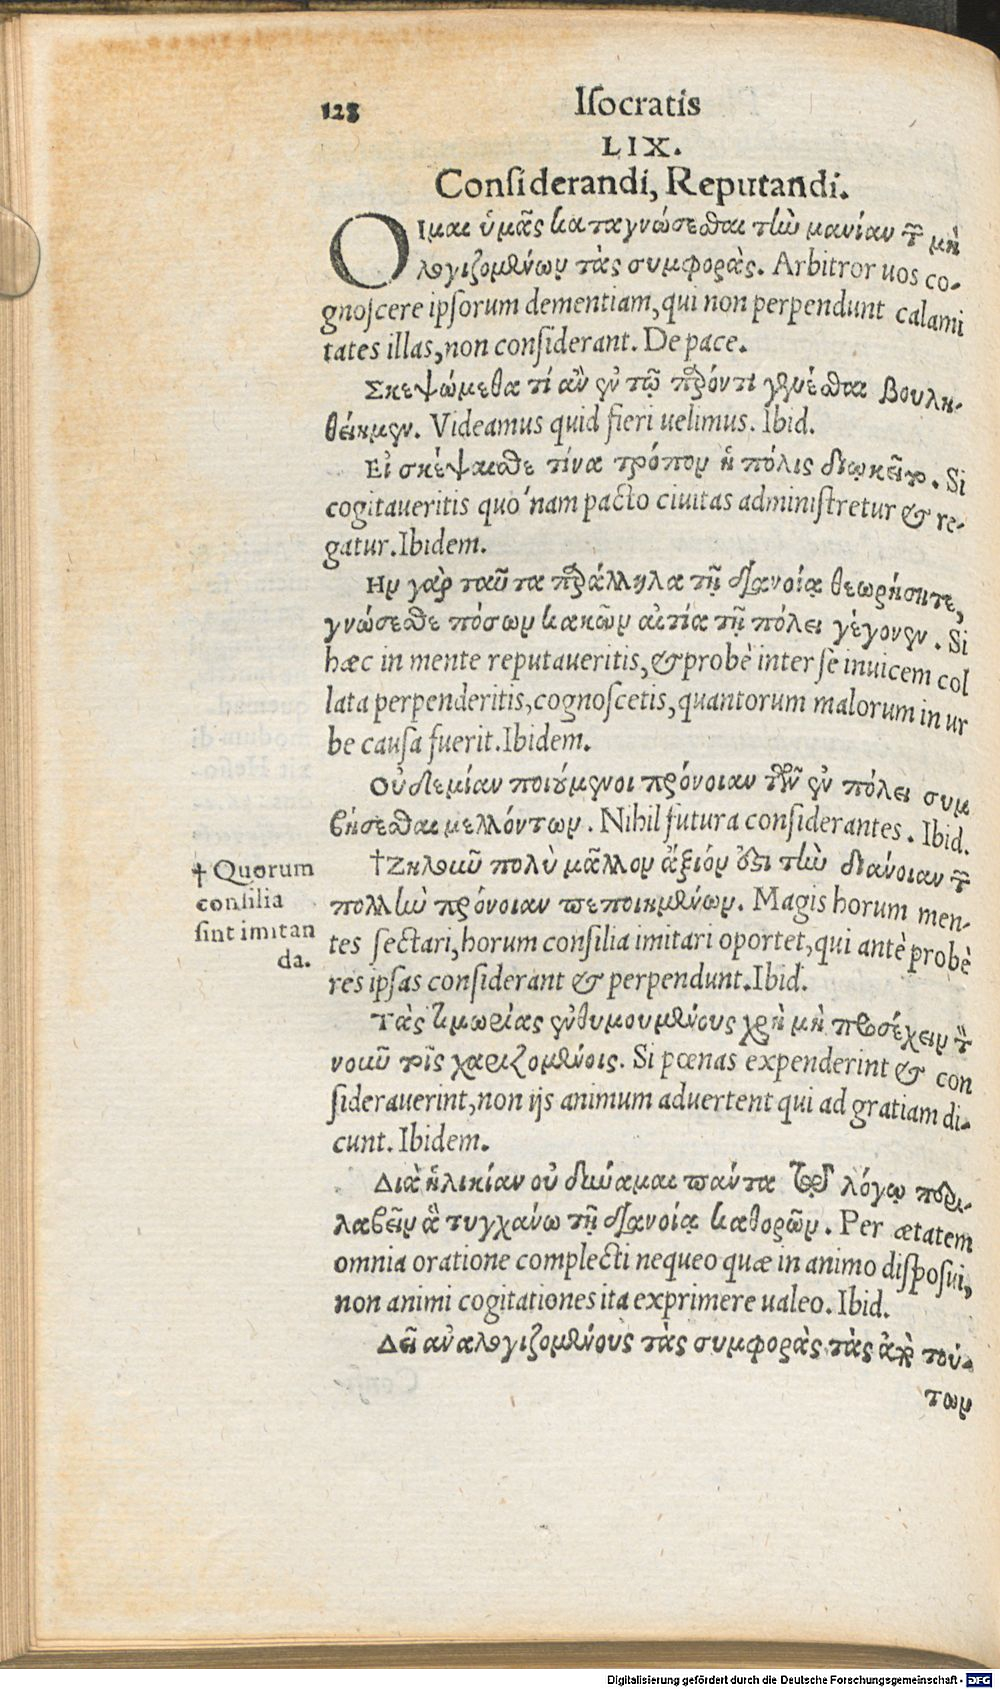 128 Iſocratis
LIX.
Conſiderandi, Reputandi.
ΟΙμαι ὑμᾶς καταγνώσεσθαι τὴν μανίαν τῶν μὴ
λογιζομένων τὰς συμφοράς. Arbitror uos co-
gnoſcere ipſorum dementiam, qui non perpendunt calami
tates illas, non conſiderant. De pace.
Σκεψώμεθα τί ἂν ἐν τῷ παρόντι γενέσθαι βουλη-
θείημεν. Videamus quid fieri uelimus. Ibid.
Εἰ σκέψαισθε τίνα τρόπον ἡ πόλις διῳκεῖτο. Si
cogitaueritis quo'nam pacto ciuitas adminiſtretur & re-
gatur. Ibidem.
Ην γὰρ ταῦτα παράλληλα τῇ διανοίᾳ θεωρήσητε,
γνώσεσθε πόσων κακῶν αἰτία τῇ πόλει γέγονεν. Si
hæc in mente reputaueritis, & probè inter ſe inuicem col
lata perpenderitis, cognoſcetis, quantorum malorum in ur
be cauſa fuerit. Ibidem.
Οὐδεμίαν ποιούμενοι πρόνοιαν τῶν ἐν πόλει συμ
βήσεσθαι μελλόντων. Nihil futura conſiderantes. Ibid.
†Ζηλοῦν πολὺ μᾶλλον ἄξιόν ἐστι τὴν διάνοιαν τῶν
πολλὴν πρόνοιαν πεποιημένων. Magis horum men-
tes ſectari, horum conſilia imitari oportet, qui antè probè
res ipſas conſiderant & perpendunt. Ibid.
† Quorum
conſilia
ſint imitan
da.
Τὰς τιμωρίας ἐνθυμουμένους χρὴ μὴ προσέχειν τὸν
νοῦν τοῖς χαριζομένοις. Si pœnas expenderint & con
ſiderauerint, non ijs animum aduertent qui ad gratiam di-
cunt. Ibidem.
Διὰ ἡλικίαν οὐ δύναμαι πάντα τῷ λόγῳ περι-
λαβεῖν ἃ τυγχάνω τῇ διανοίᾳ καθορῶν. Per ætatem
omnia oratione complecti nequeo quæ in animo diſpoſui,
non animi cogitationes ita exprimere ualeo. Ibid.
Δεῖ ἀναλογιζομένους τὰς συμφορὰς τὰς ἐκ τού-
των
Digitalisierung gefördert durch die Deutsche Forschungsgemeinschaft - DFG